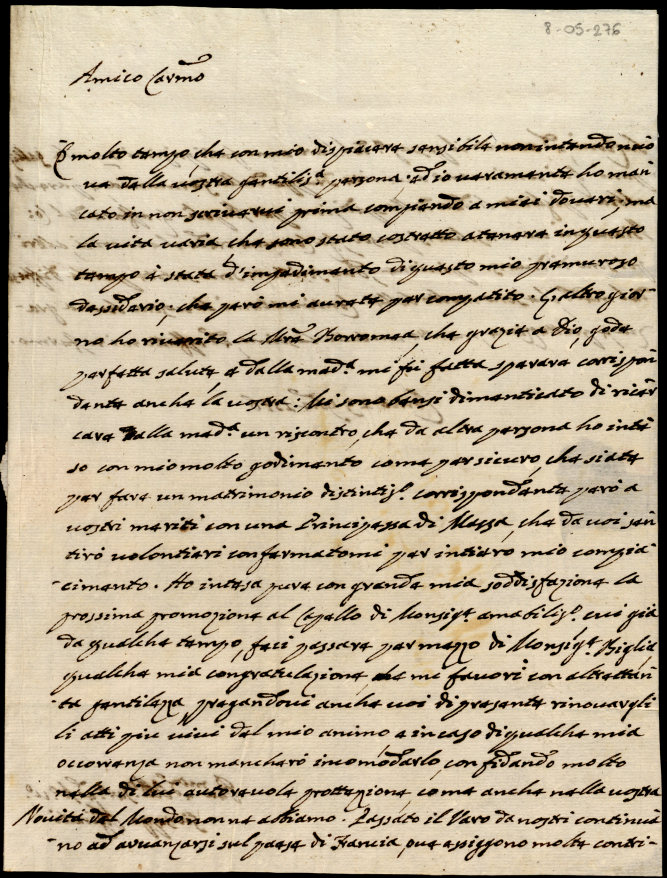 8-05-276
Amico Carmo
È molto tempo che con mio dispiacere sensibile non intendo nuo
va dalla vostra gentilis.a persona: ed io veramente ho man
cato in non scrivervi prima compiendo a miei doveri; ma
la vita varia che sono stato costretto a tenere in questo
tempo è stata d'impedimento di questo mio premuroso
desiderio; che però mi averete per compatito: L'altro gior
no ho riverito la Mrā Borromea, che grazie a Dio, gode
perfetta salute e dalla mad.a mi fù fatta sperare corrispon
dente anche la vostra: Mi sono bensi dimenticato di ricer
care dalla mad.a un riscontro, che da altra persona ho inte
so con mio molto godimento come per sicuro, che siate
per fare un matrimonio distintis.o corrispondente però a
vostri meriti con una Principessa di Massa, che da voi sen
tirò volontieri confermatomi per intiero mio compia
cimento. Ho intesa pure con grande mia soddisfazione la
prossima promozione al Capello di Monsig.r amabilis.o cui già
da qualche tempo, feci passare per mezzo di Monsig.r Biglia
qualche mia congratulazione, che mi favorì con altrettan
ta gentilezza pregandovi anche voi di presente rinovargli
li atti piu vivi del mio animo e in caso di qualche mia
occorenza non mancherò incomodarlo, confidando molto
nella di lui autorevole protezione come anche nella vostra
Novità del Mondo non ne abbiamo. Passato il Varo da nostri continua
no ad avvanzarsi sul paese di Francia, ove essiggono molte contri-